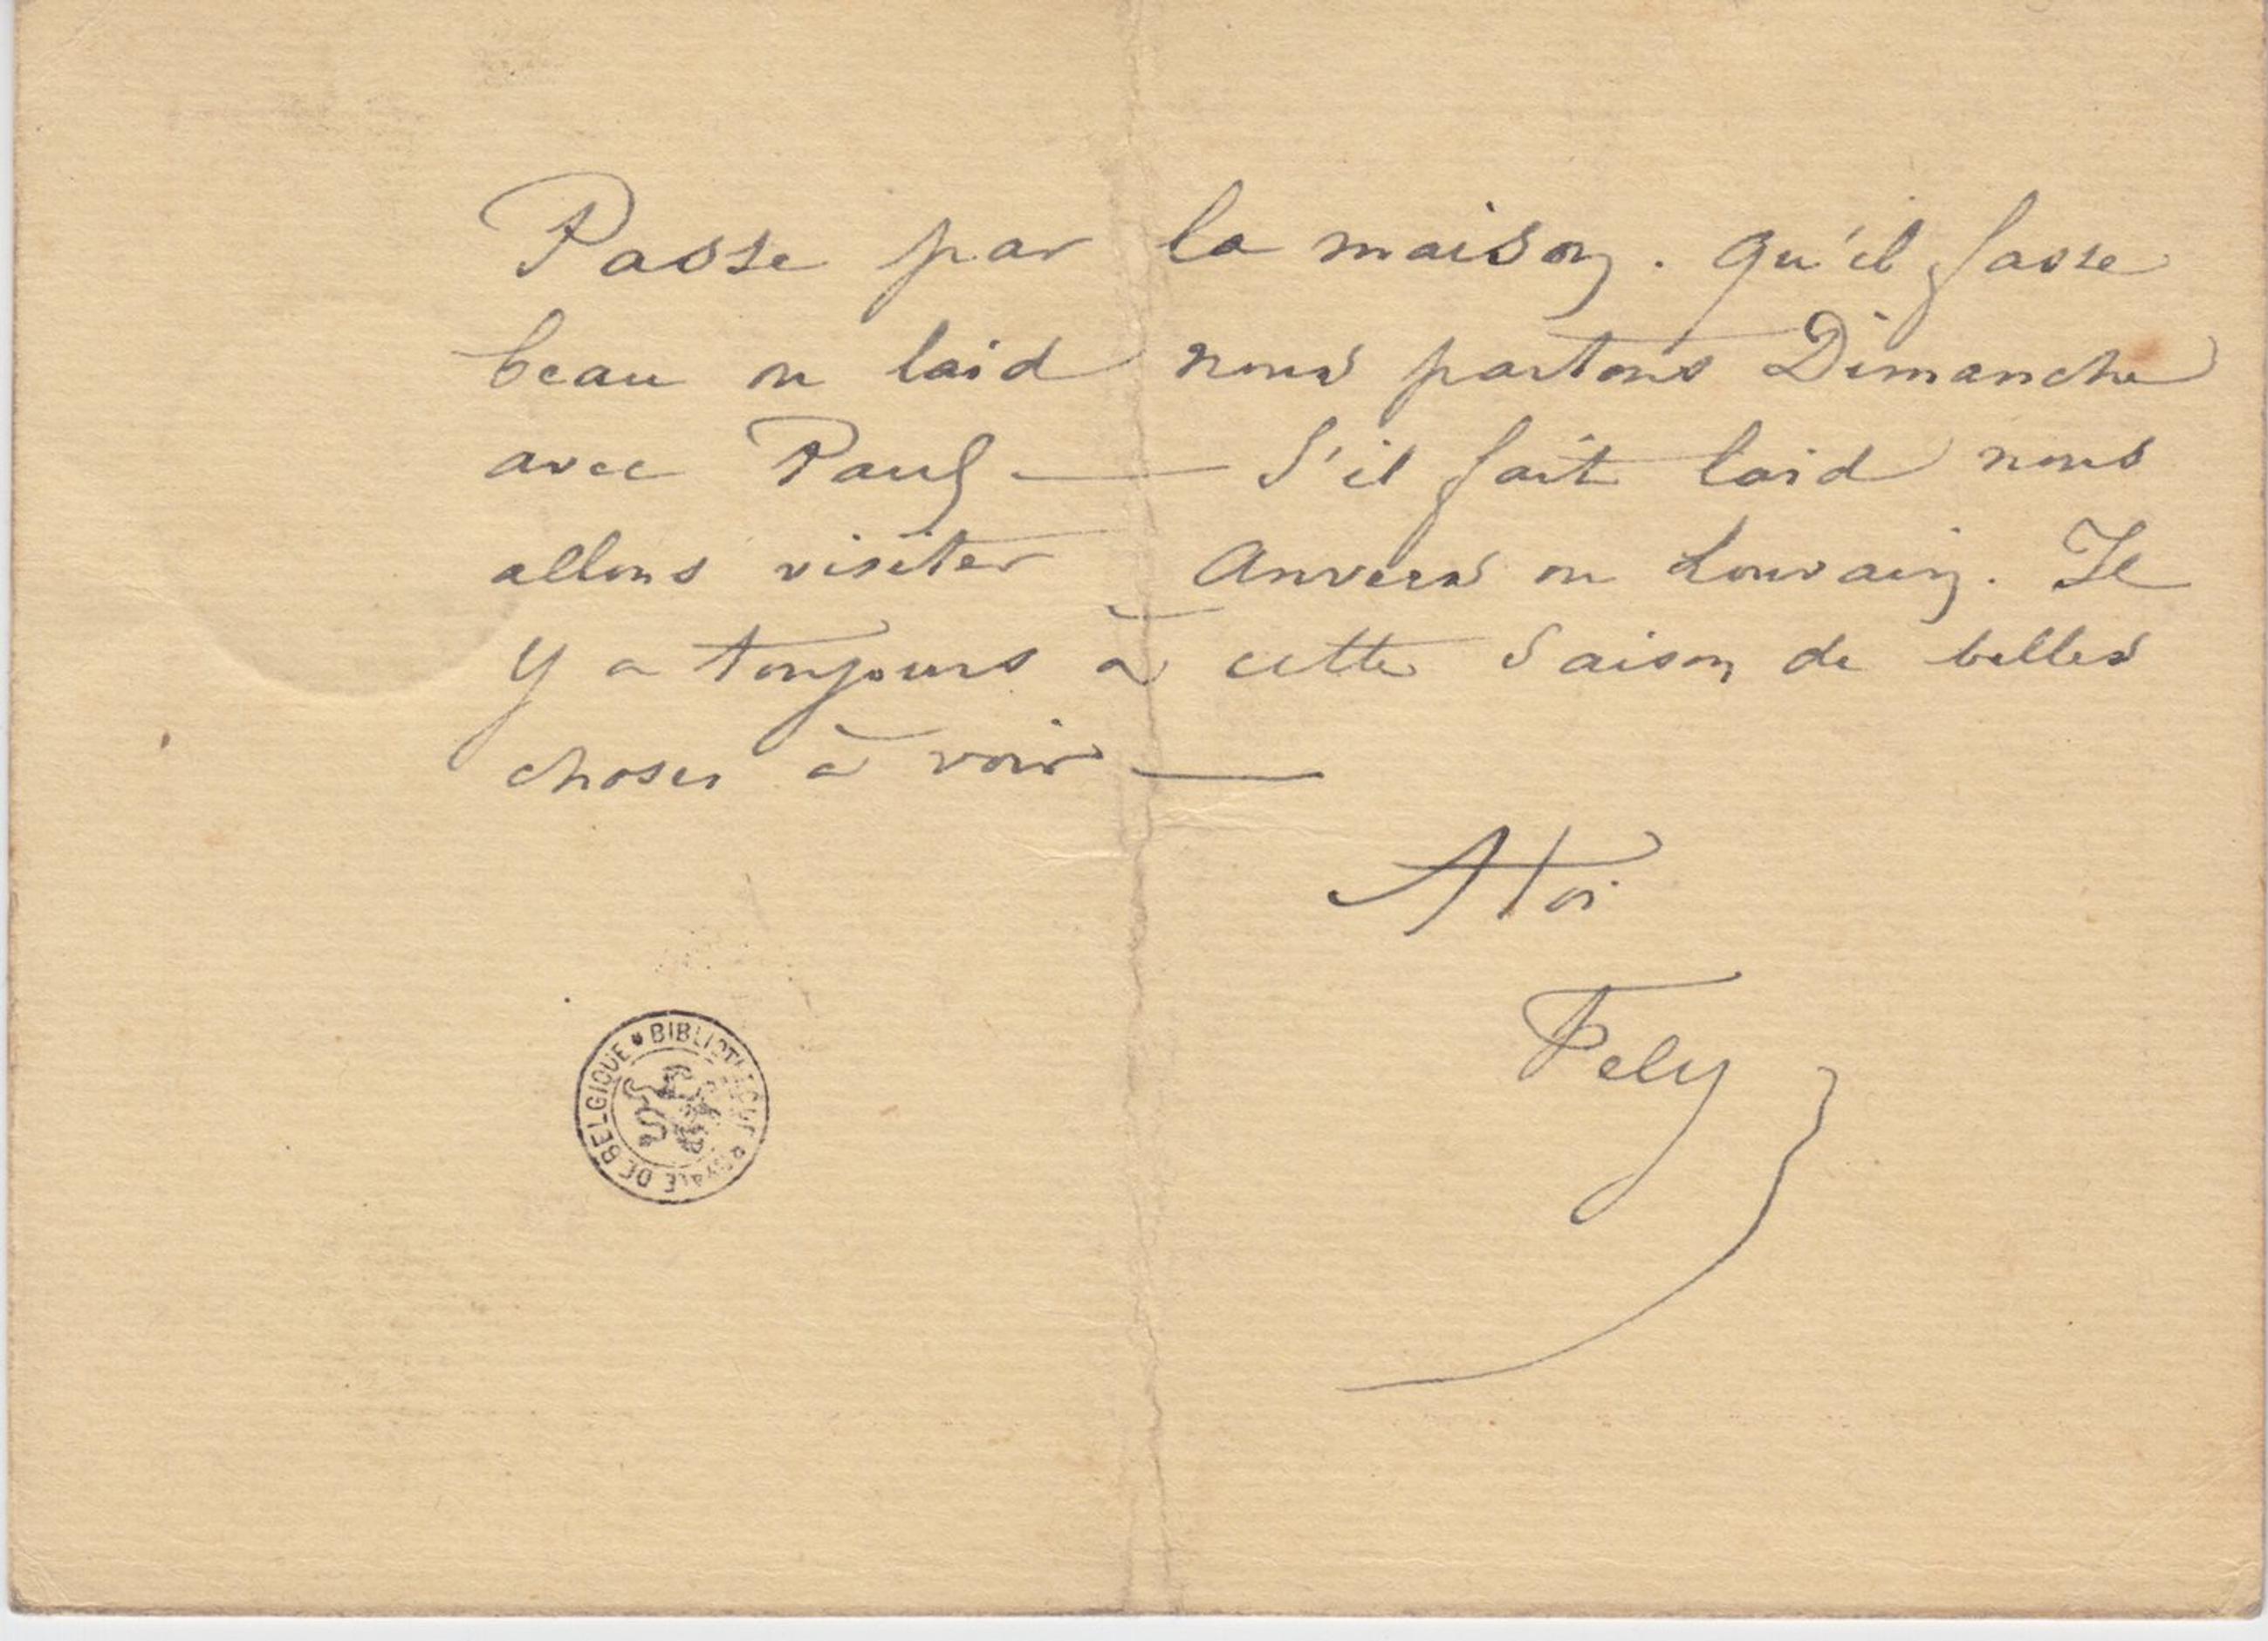 Passe par la maison. Qu'il fasse
beau ou laid nous partons Dimanche
avec Paul — S'il fait laid nous
allons visiter Anvers ou Louvain. Il
y a toujours à cette saison de belles
choses à voir —
A toi
Fely
BIBLIOTHEQUE * ROYALE DE BELGIQUE *